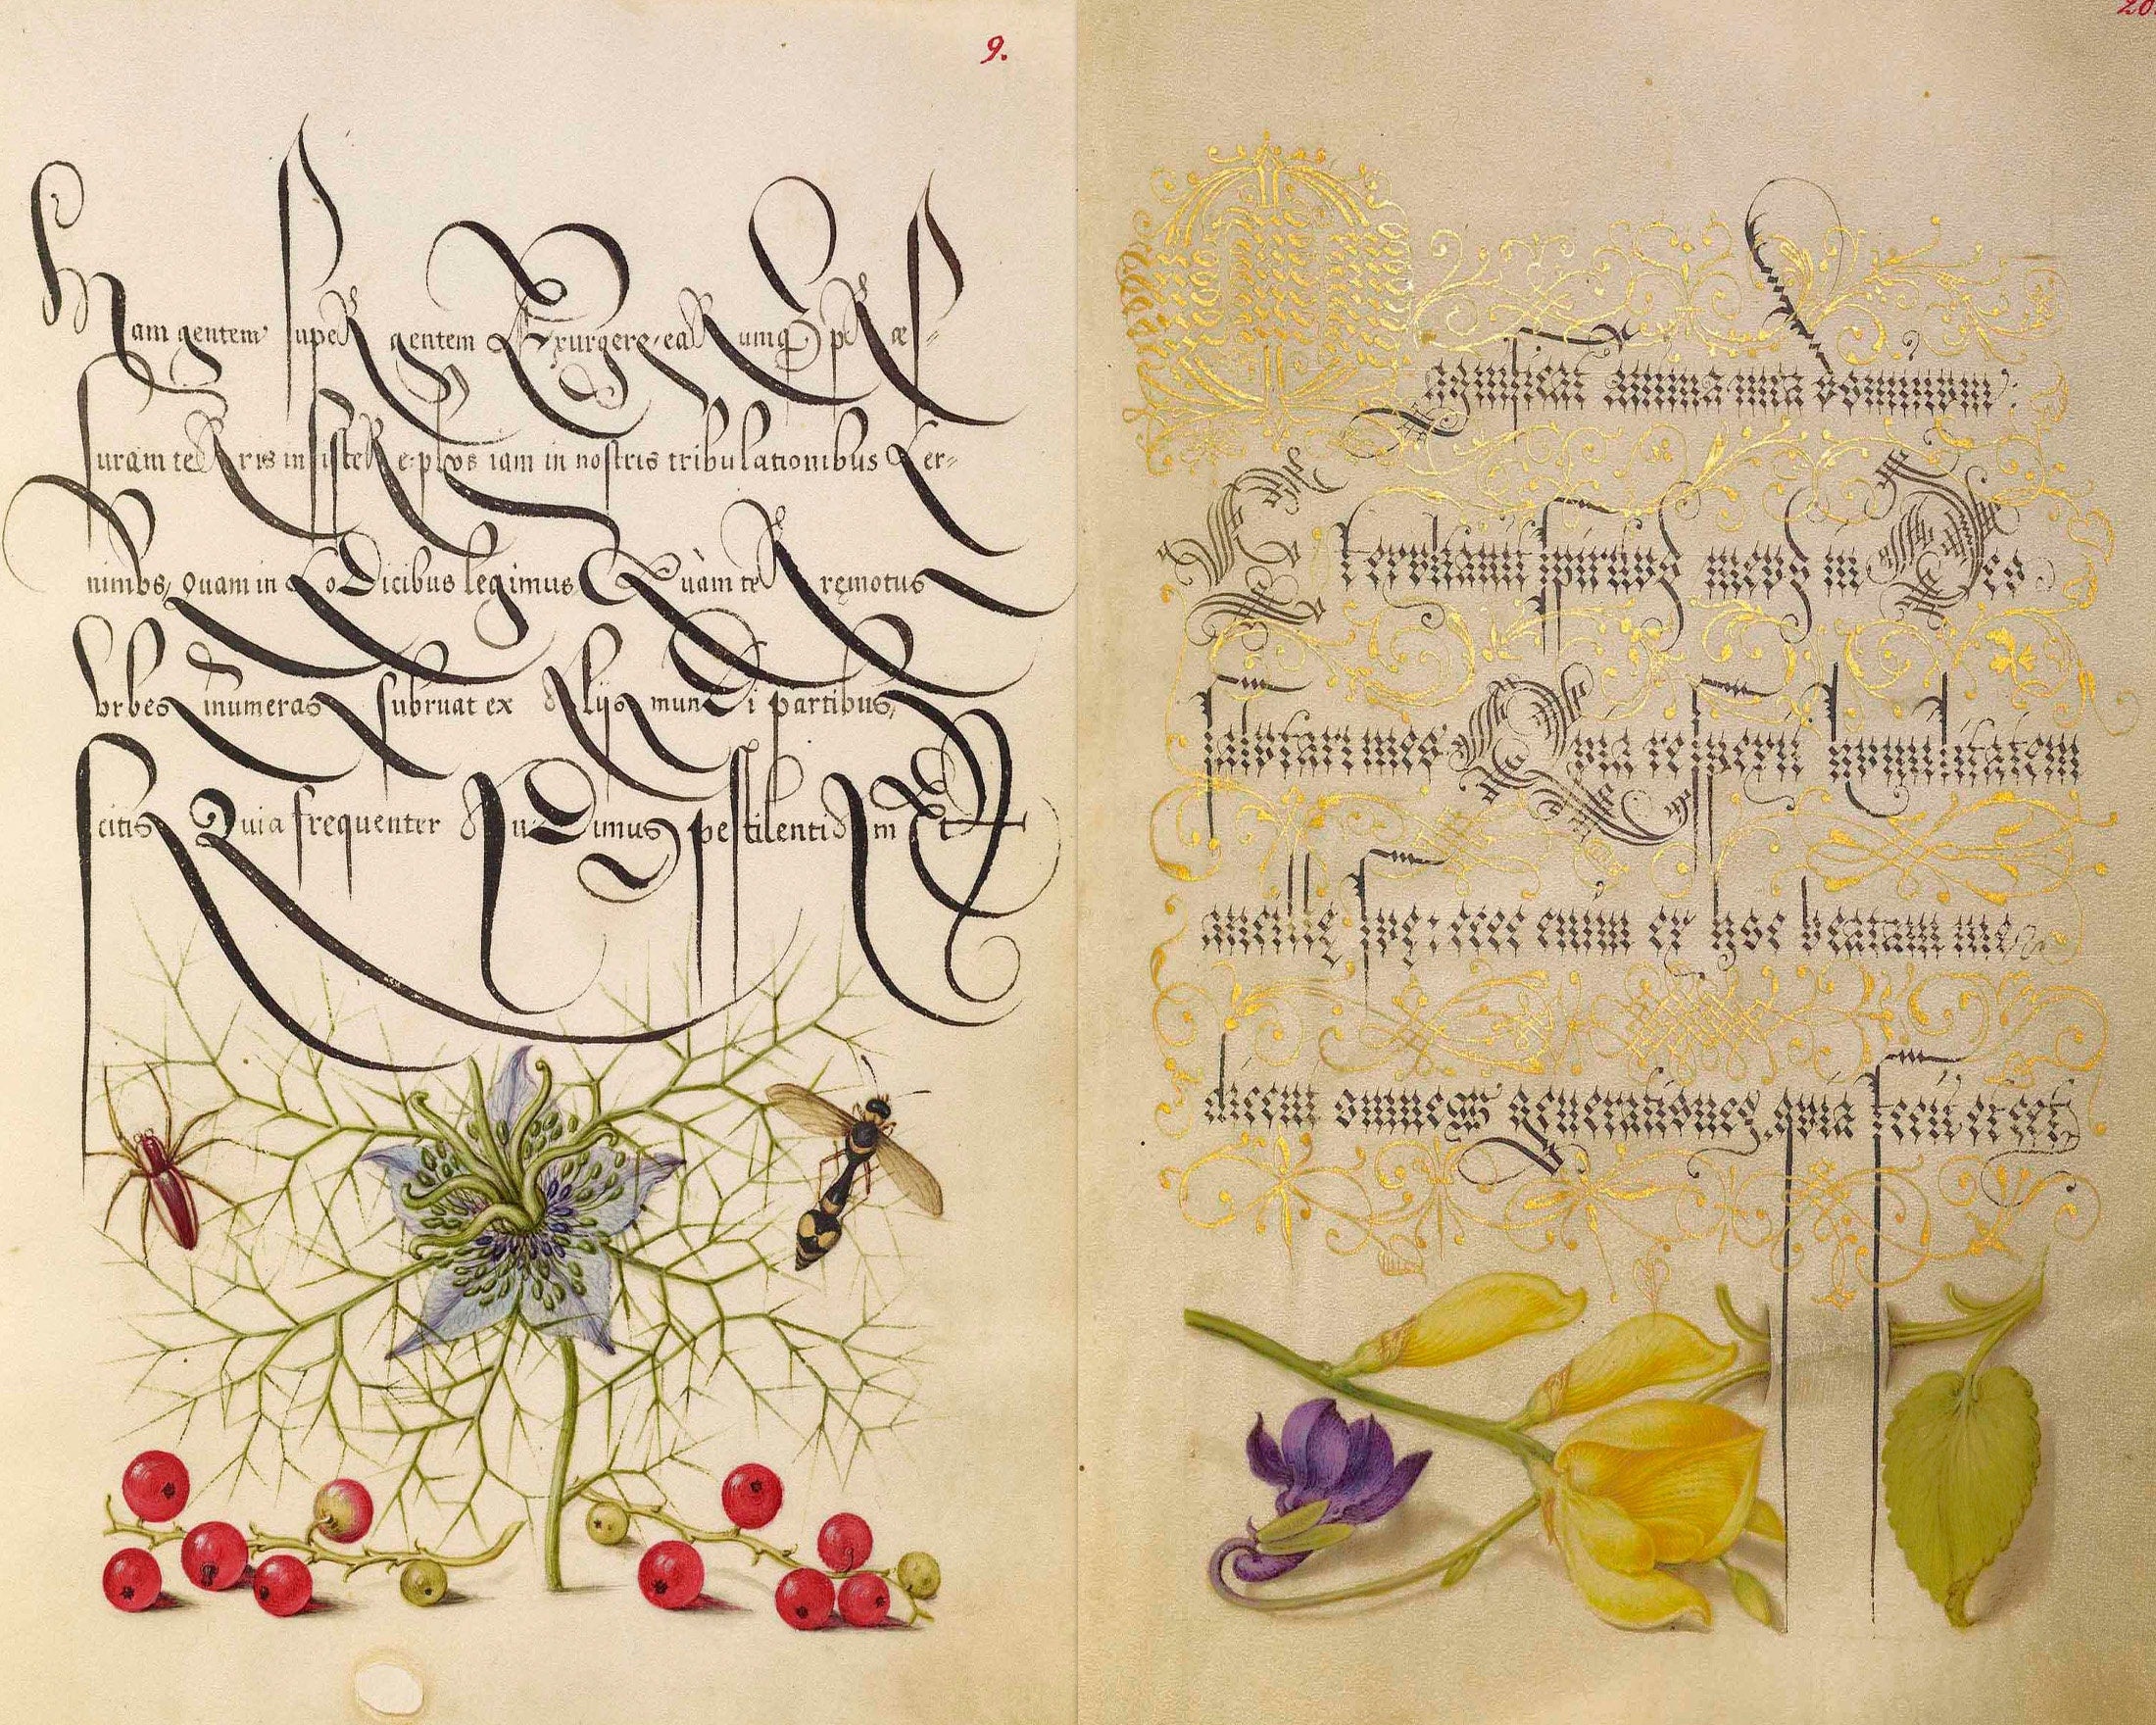 9.
Nam gentem super gentem Exurgere, earumq́ præs-
suram terris insistere, plus iam in nostris tribulationibus Cer-
nimus, quam in Codicibus legimus. Quàm terręmotus
vrbes innumeras subruat ex Alijs mundi partibus,
scitis Quia frequenter Audimus pestilentiam Et
20
Magnificat anima mea dominum:
Et exultauit spiritus meus in Deo
salutari meo. Quia respexit humilitatem
ancillę suę: ecce enim ex hoc beatam me
dicent omnes generationes, quia fecit